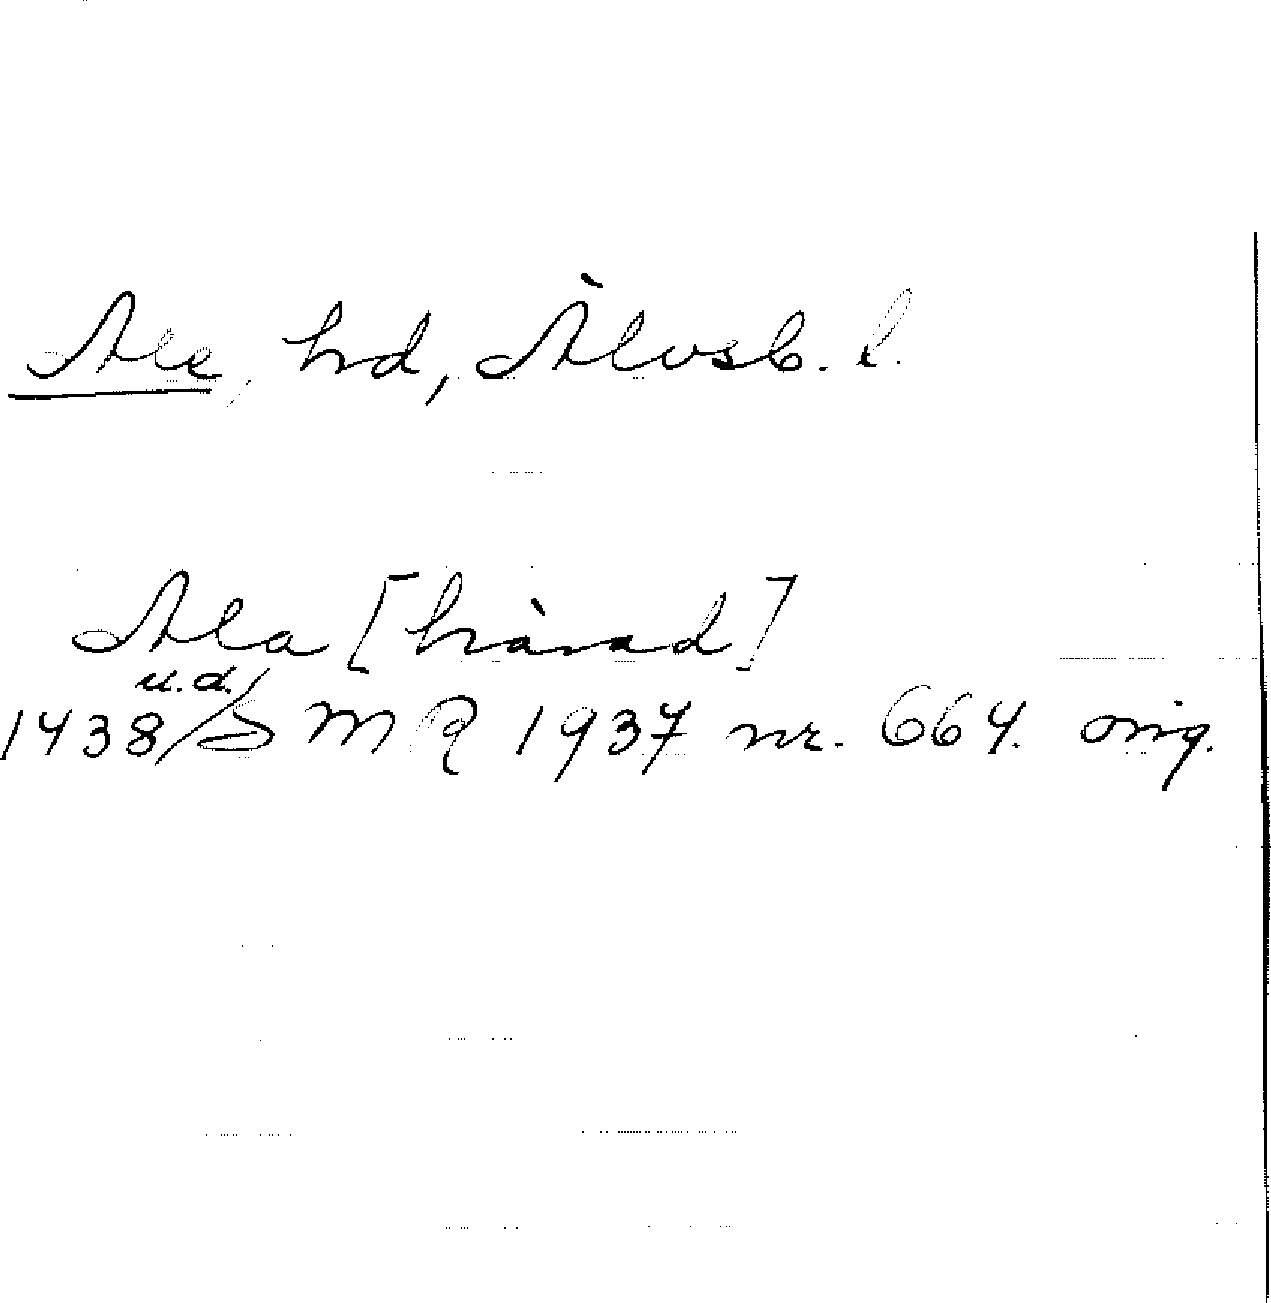 Ale, hd, Älvsb. l.
Ala [härad]
u.d.
1438/S MR 1937 nr. 664. orig.